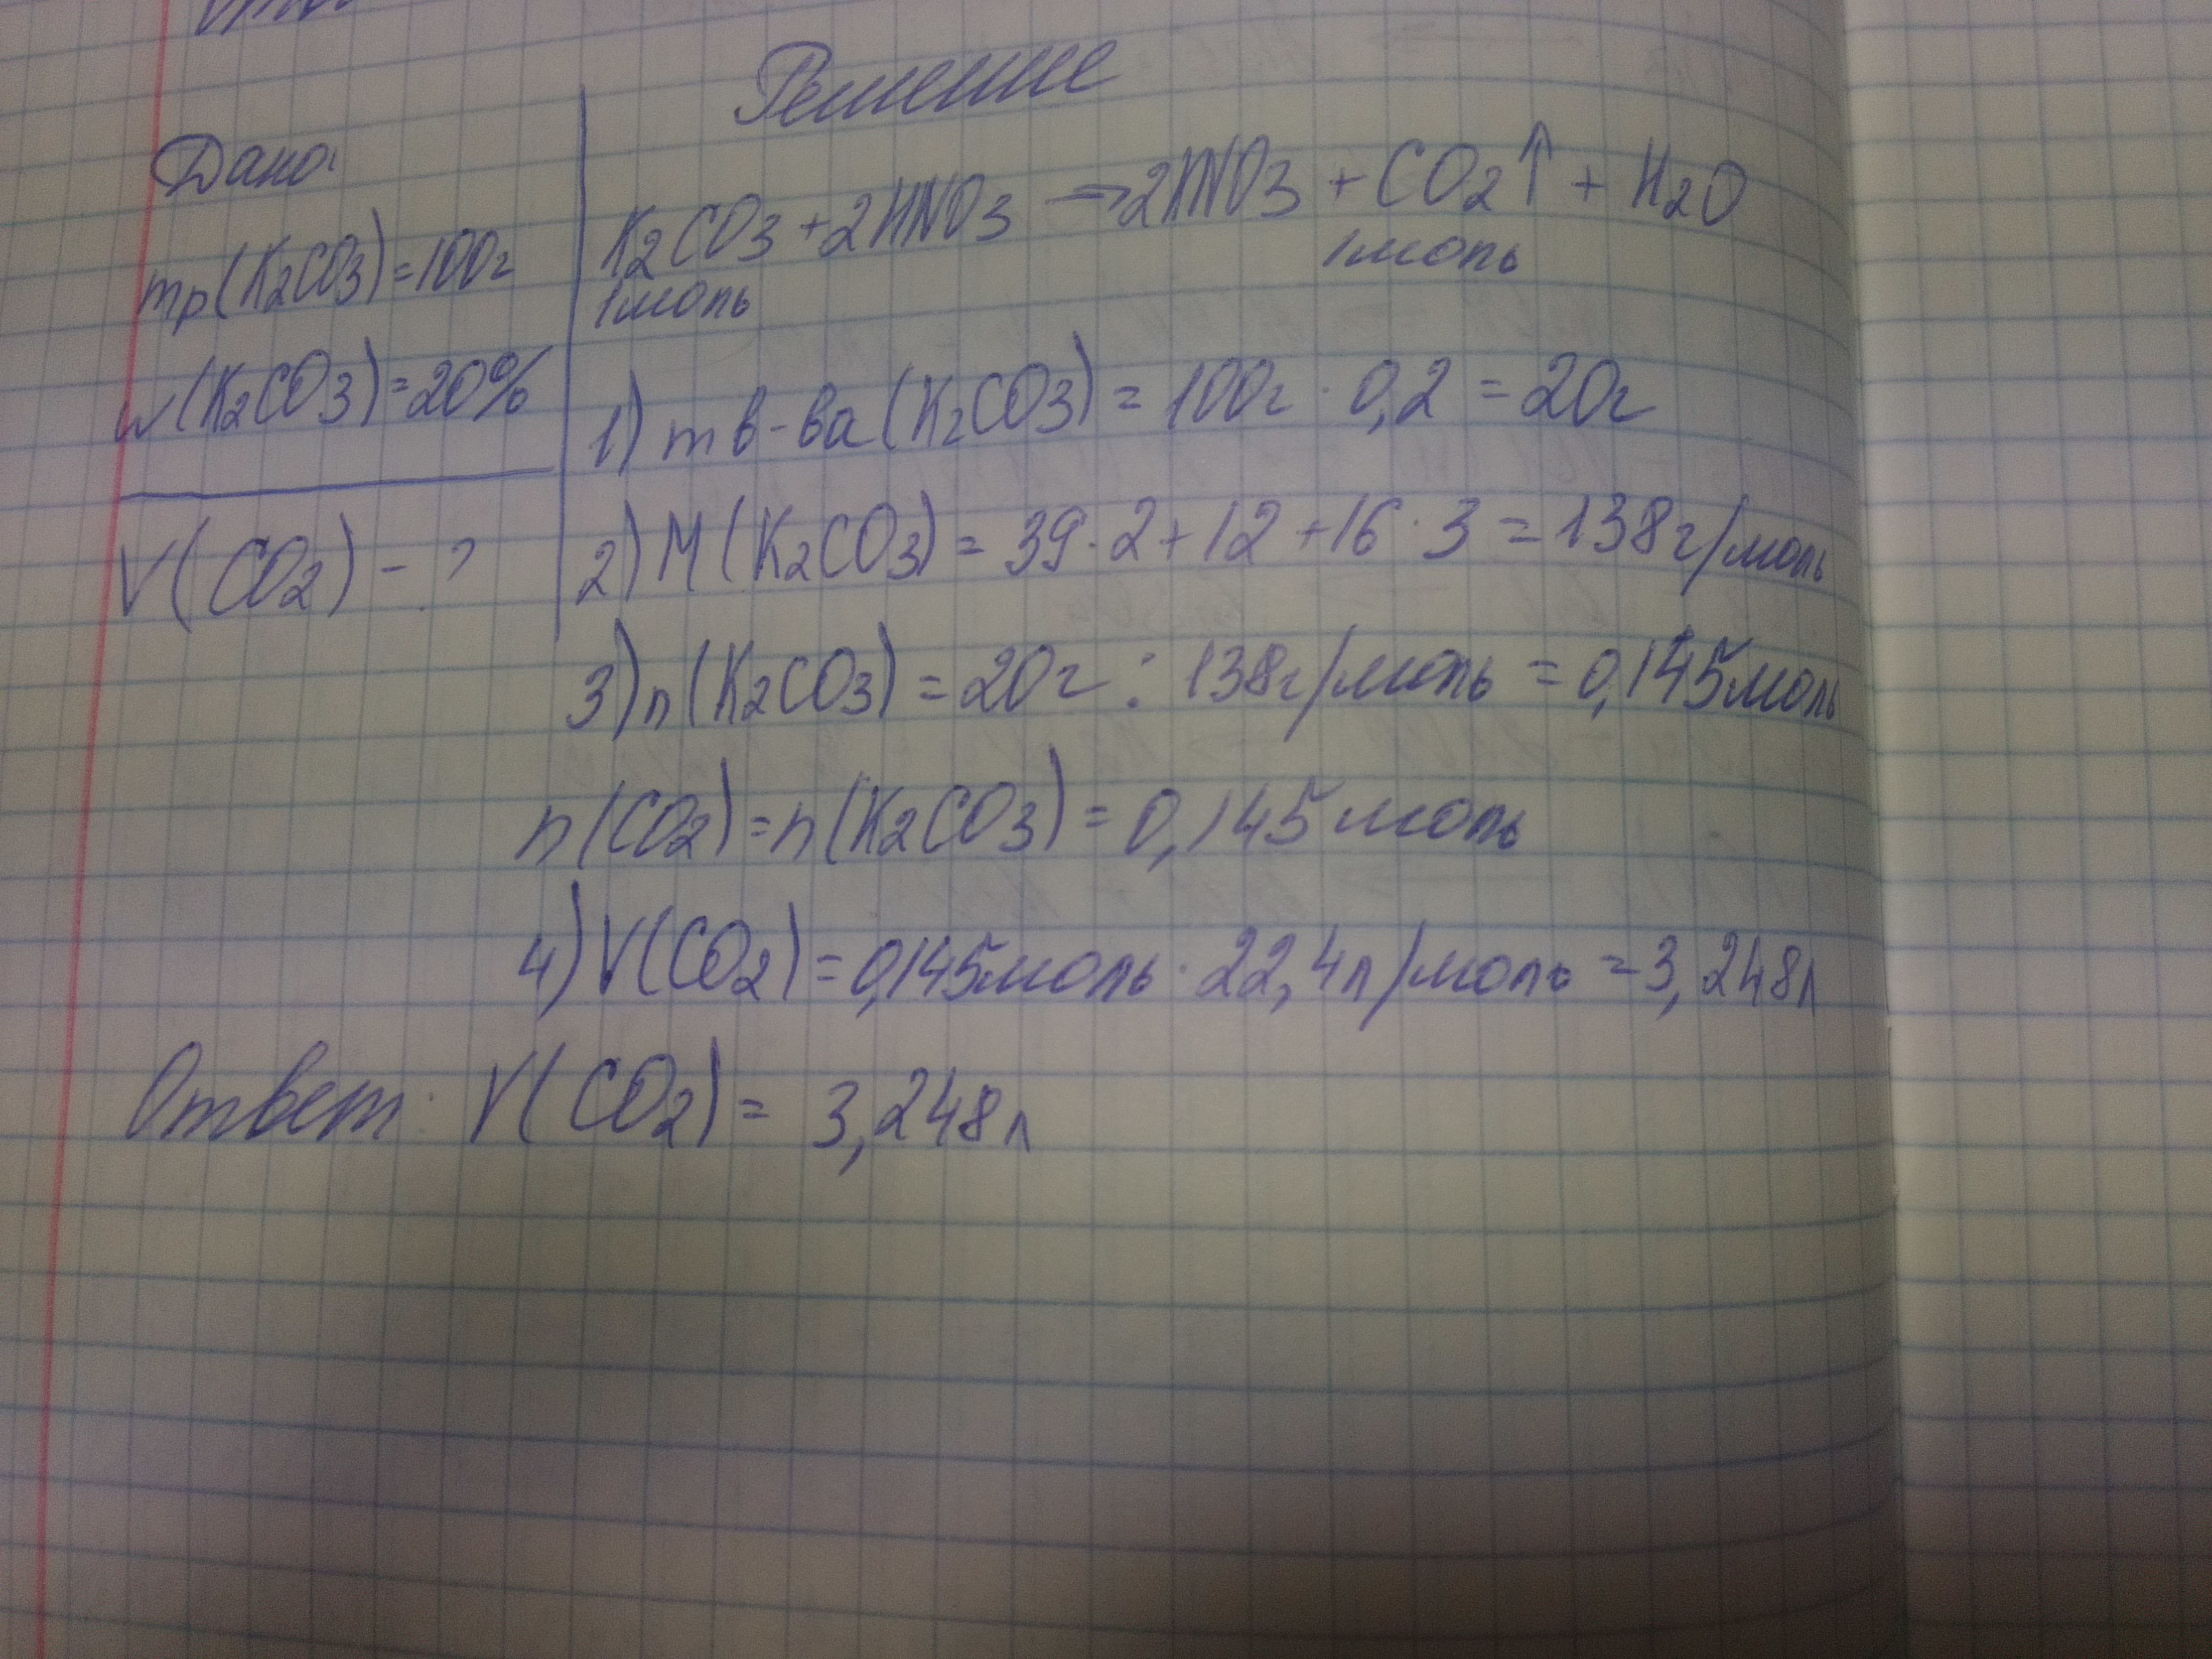 Решение
Дано:
mр(K2CO3)=100г
w(K2CO3)=20%
V(CO2) - ?
K2CO3 + 2HNO3 → 2KNO3 + CO2↑ + H2O
1моль 1моль
1) m в-ва(K2CO3) = 100г · 0,2 = 20г
2) M(K2CO3) = 39·2 + 12 + 16·3 = 138г/моль
3) n(K2CO3) = 20г : 138г/моль = 0,145моль
n(CO2) = n(K2CO3) = 0,145 моль
4) V(CO2) = 0,145моль · 22,4л/моль = 3,248л
Ответ: V(CO2) = 3,248л